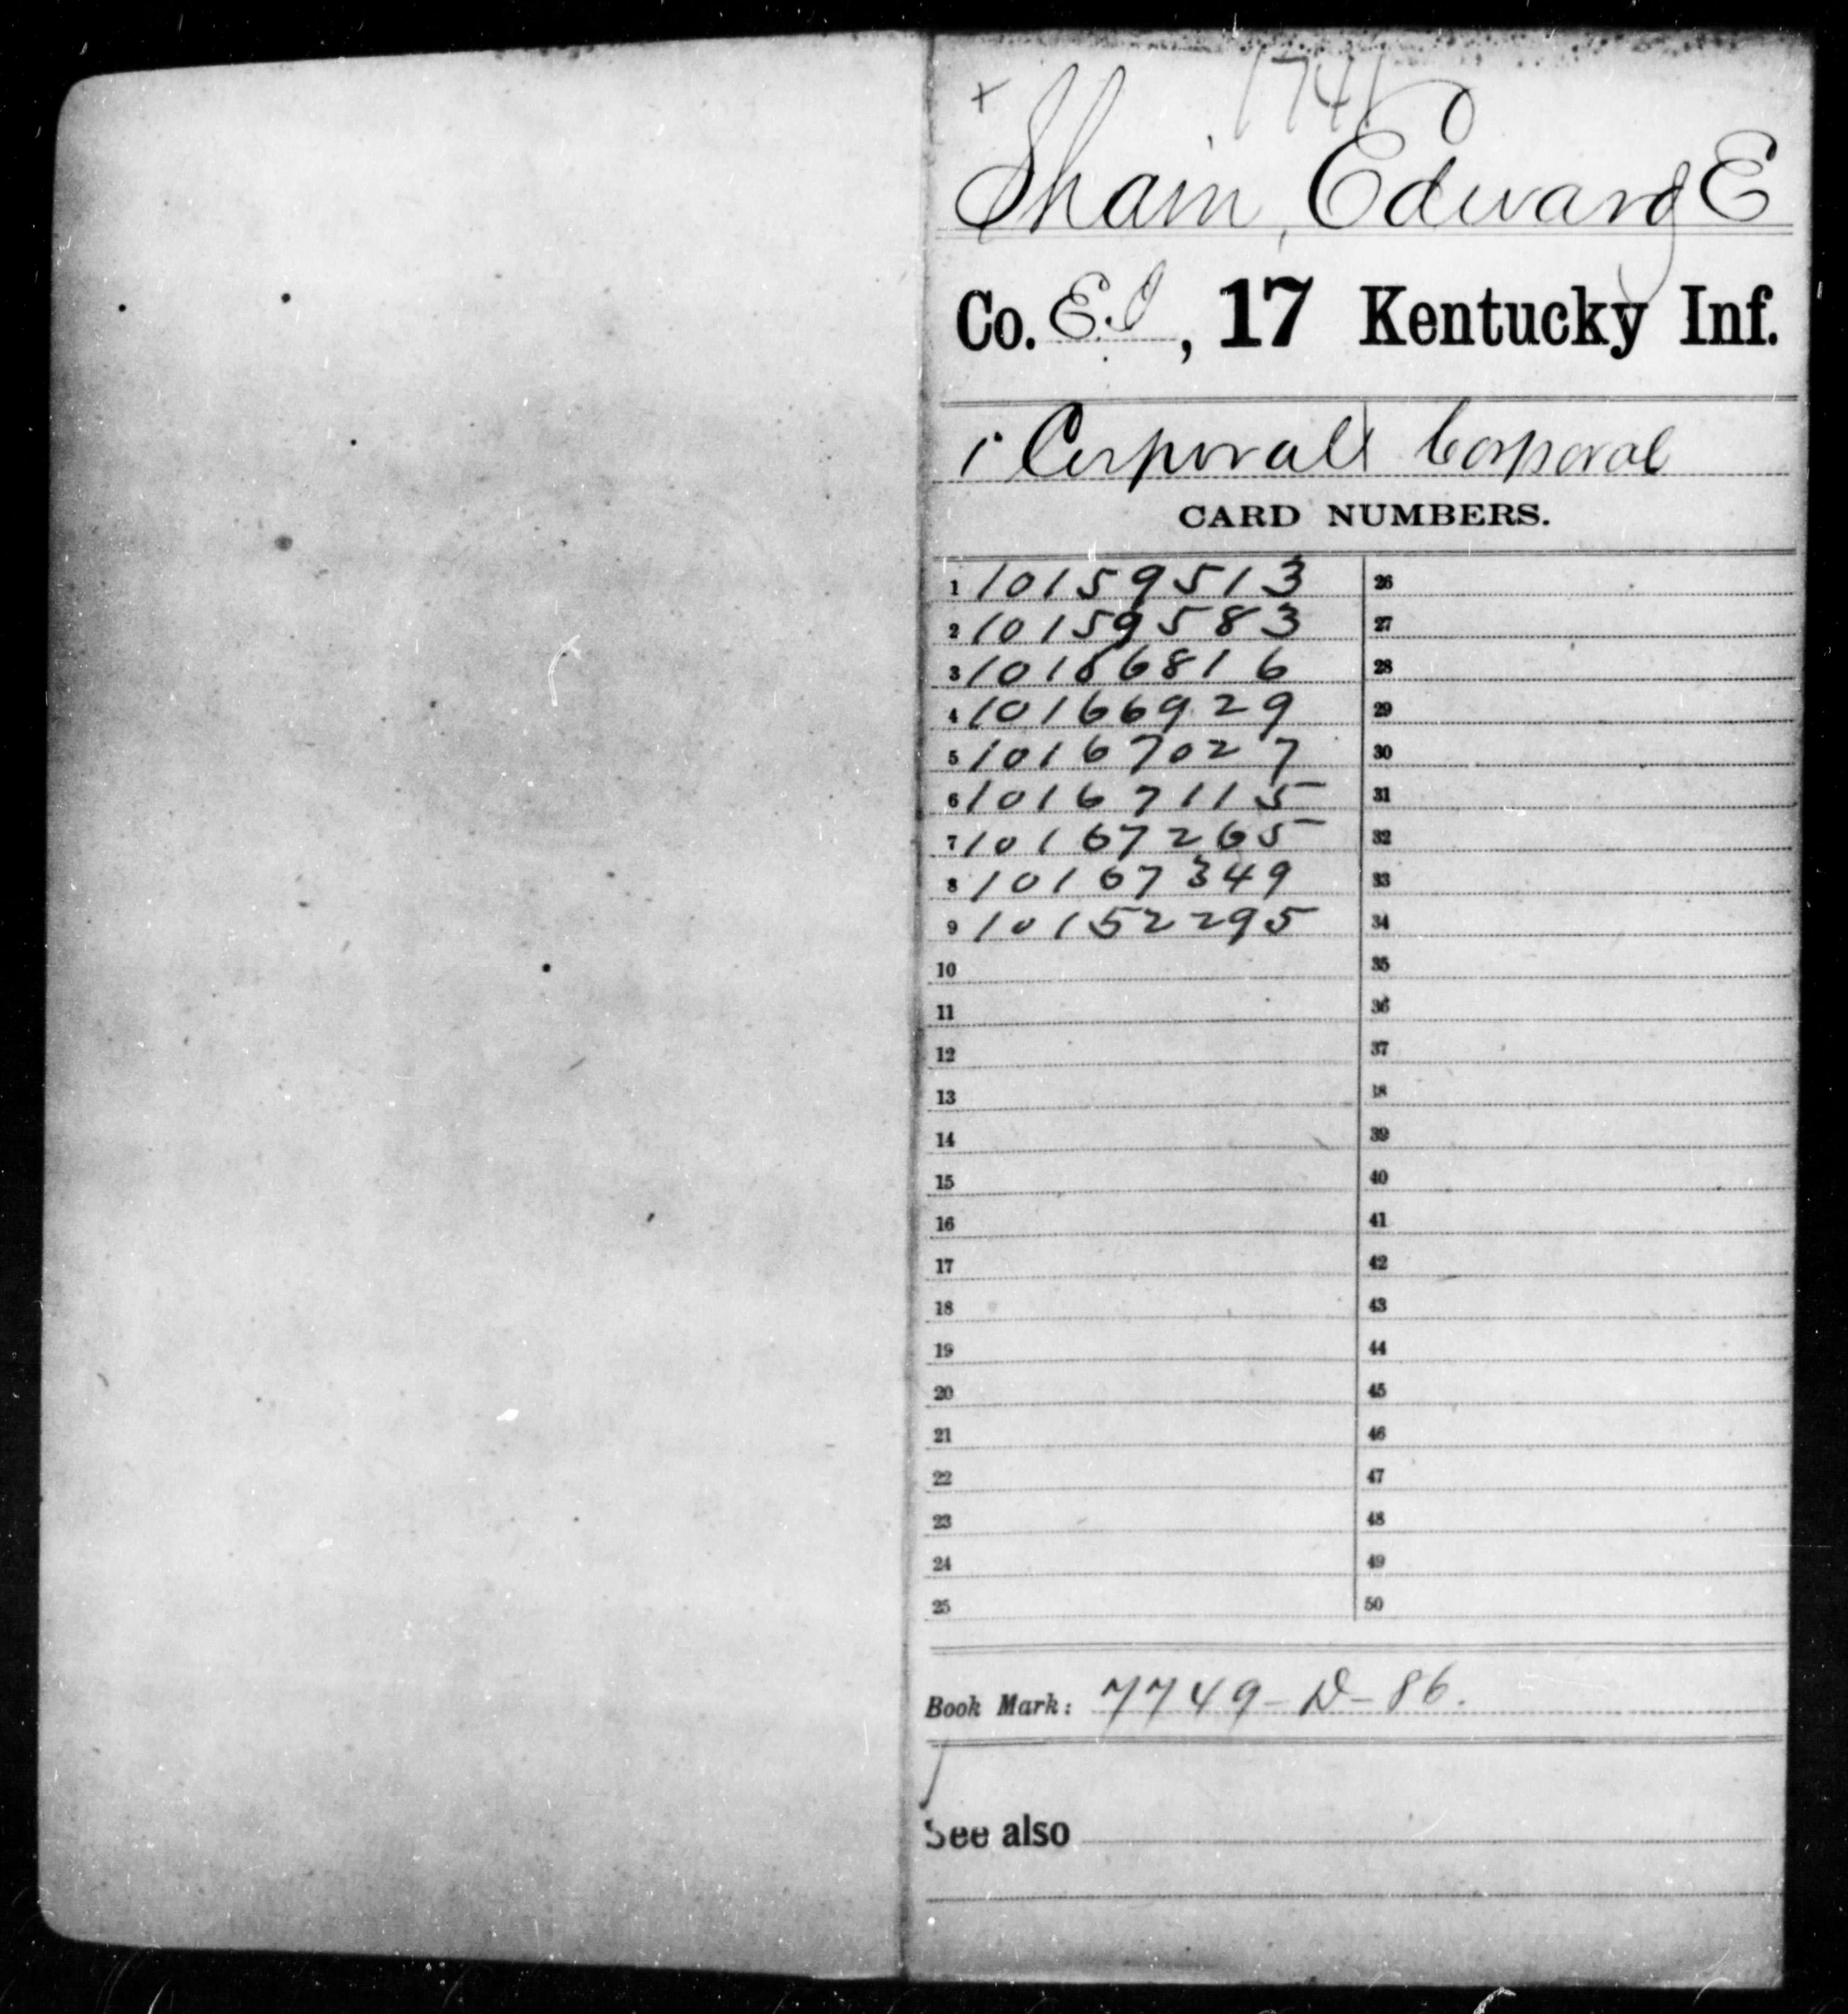 x 1741
Shain, Edward E
Co. E. I, 17 Kentucky Inf.
Corporal Corporal
CARD NUMBERS.
1 10159513 26
2 10159583 27
3 10166816 28
4 10166929 29
5 10167027 30
6 10167115 31
7 10167265 32
8 10167349 33
9 10152295 34
10 35
11 36
12 37
13 38
14 39
15 40
16 41
17 42
18 43
19 44
20 45
21 46
22 47
23 48
24 49
25 50
Book Mark: 7749-D-86.
See also